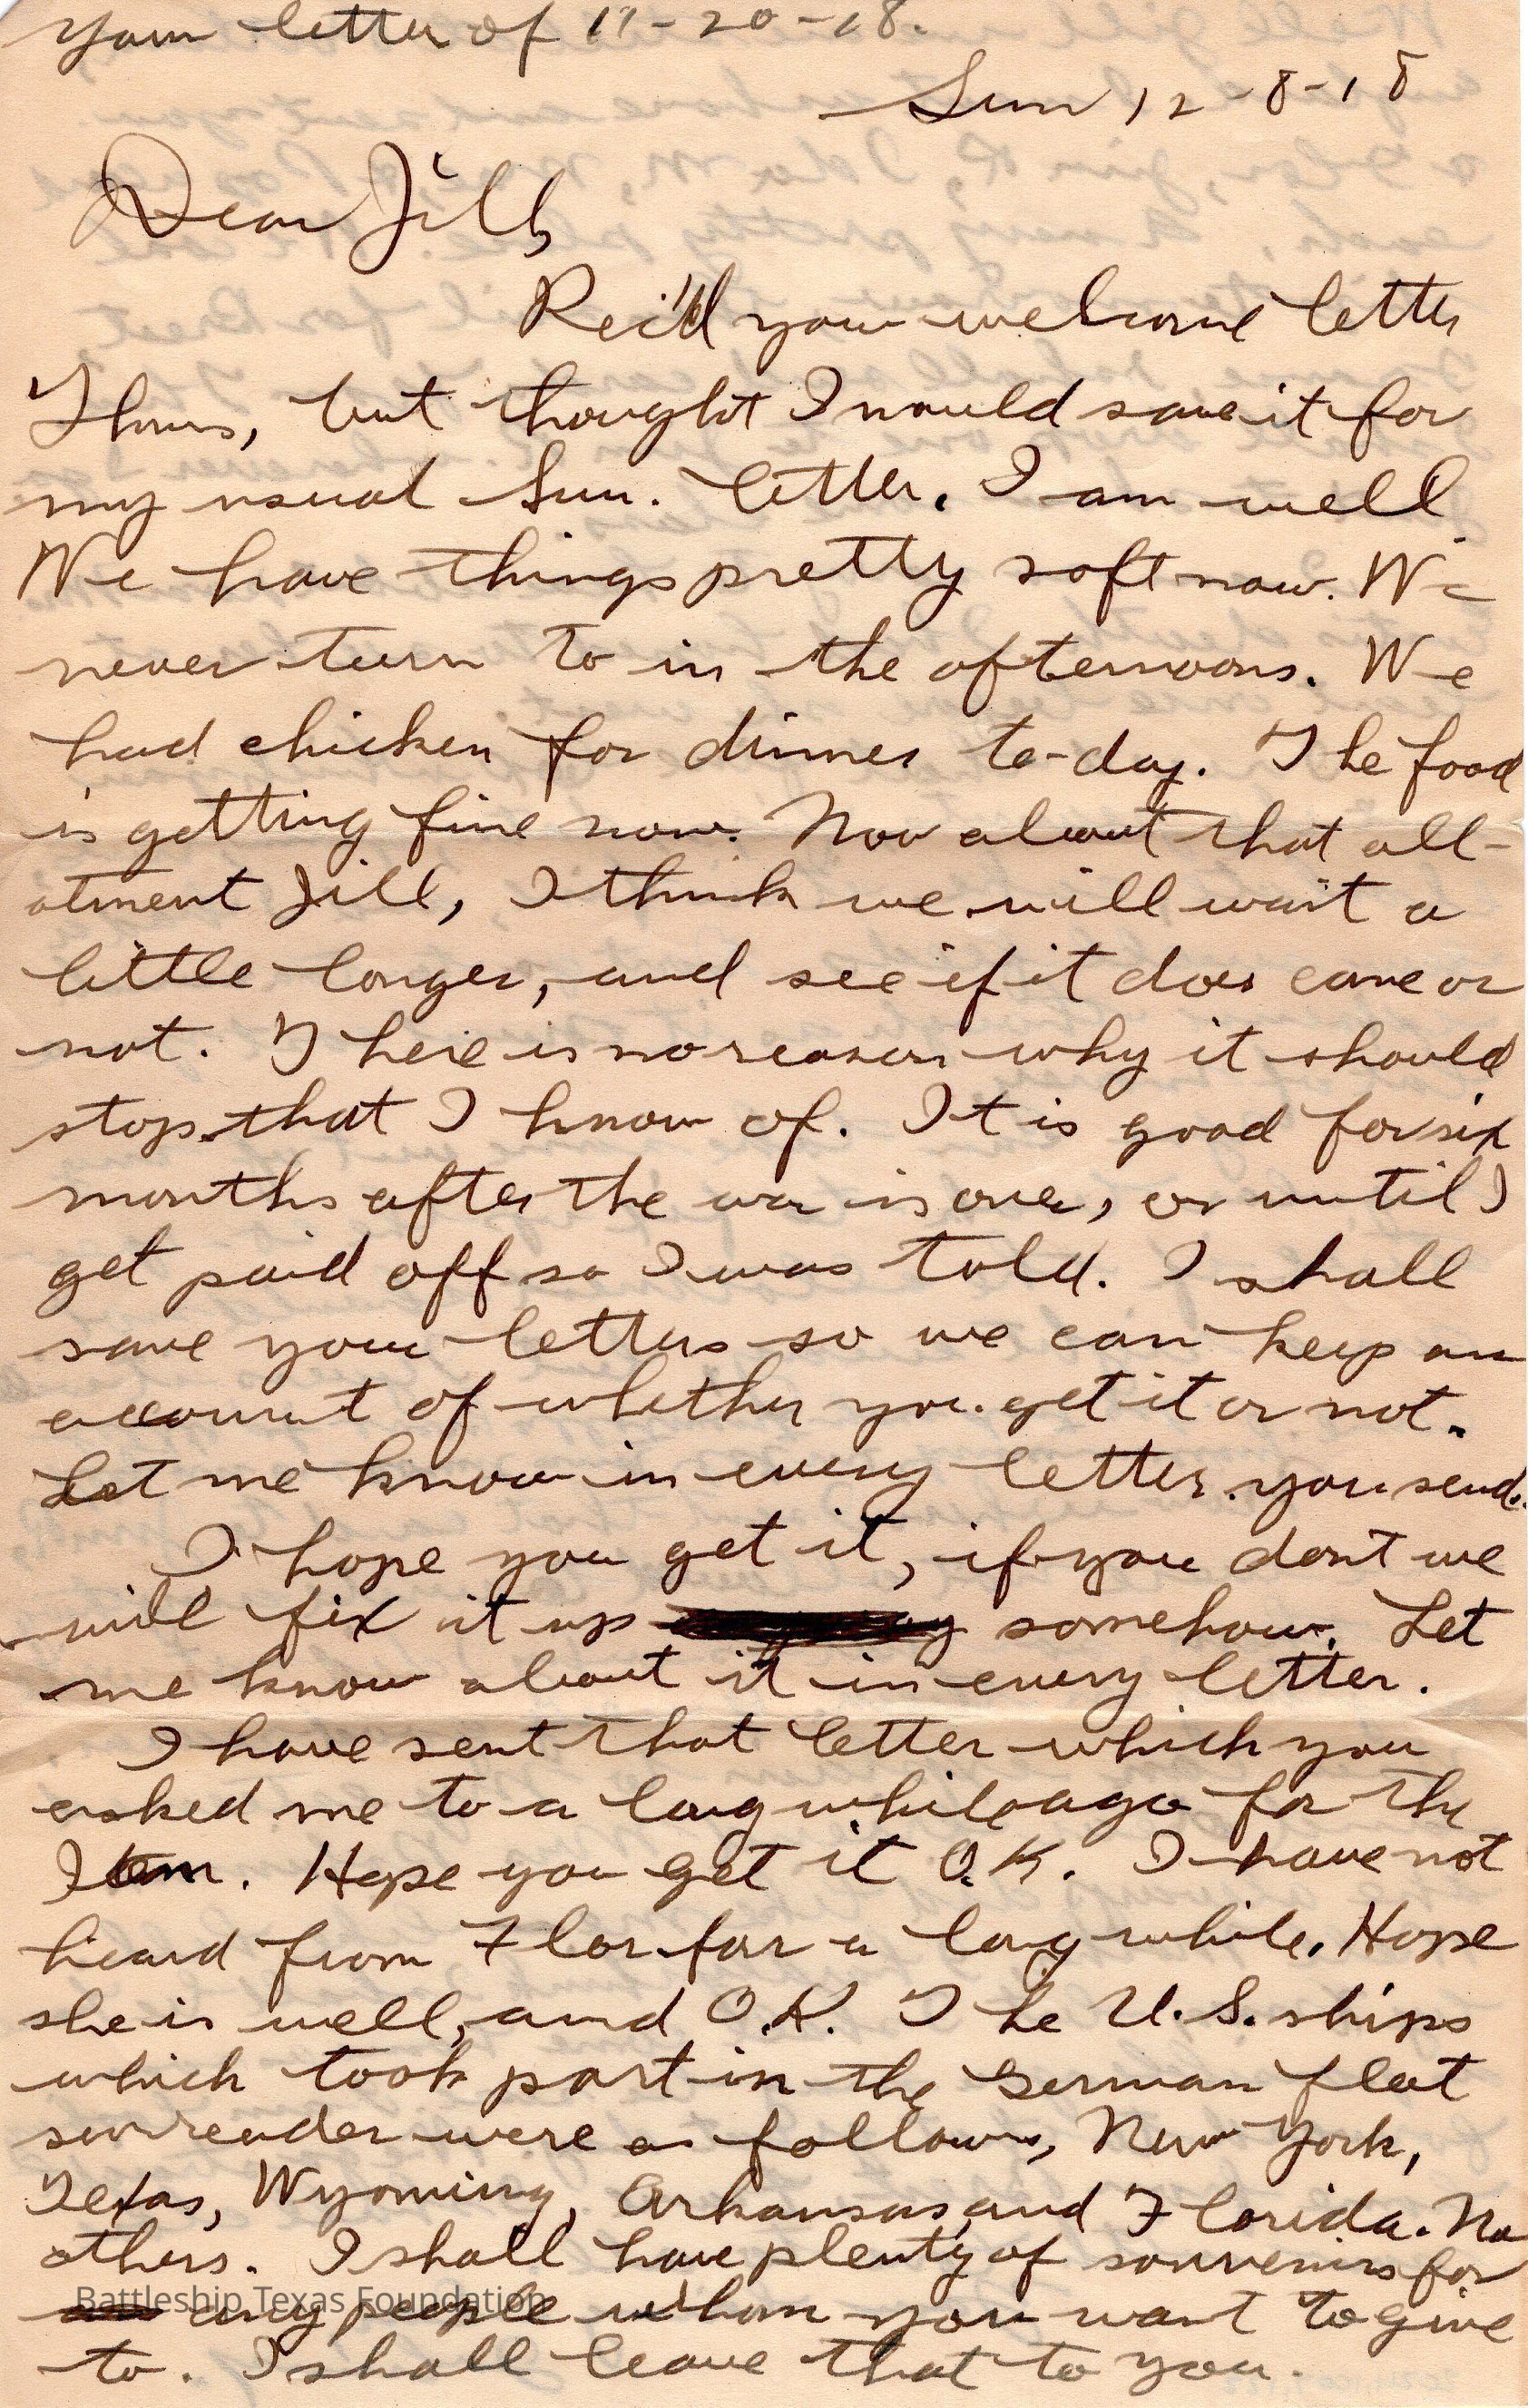 Your letter of 11-20-18.
Sun 12-8-18
Dear Jill,
Rec'd your welcome letter
Thurs, but thought I would save it for
my usual Sun. letter. I am well.
We have things pretty soft now. We
never turn to in the afternoons. We
had chicken for dinner to-day. The food
is getting fine now. Now about that all-
otment Jill, I think we will wait a
little longer, and see if it does come or
not. There is no reason why it should
stop that I know of. It is good for six
months after the war is over, or until I
get paid off so I was told. I shall
save your letters so we can keep an
account of whether you get it or not.
Let me know in every letter you send.
I hope you get it, if you dont we
will fix it up somehow. Let
me know about it in every letter.
I have sent that letter which you
asked me to a long while ago for the
Item. Hope you get it O.K. I have not
heard from Flor for a long while. Hope
she is well, and O.K. The U.S. ships
which took part in the German fleet
surrender were as follows, New York,
Texas, Wyoming, Arkansas, and Florida. No
others. I shall have plenty of souvenirs for
any people whom you want to give
to. I shall leave that to you.
Battleship Texas Foundation